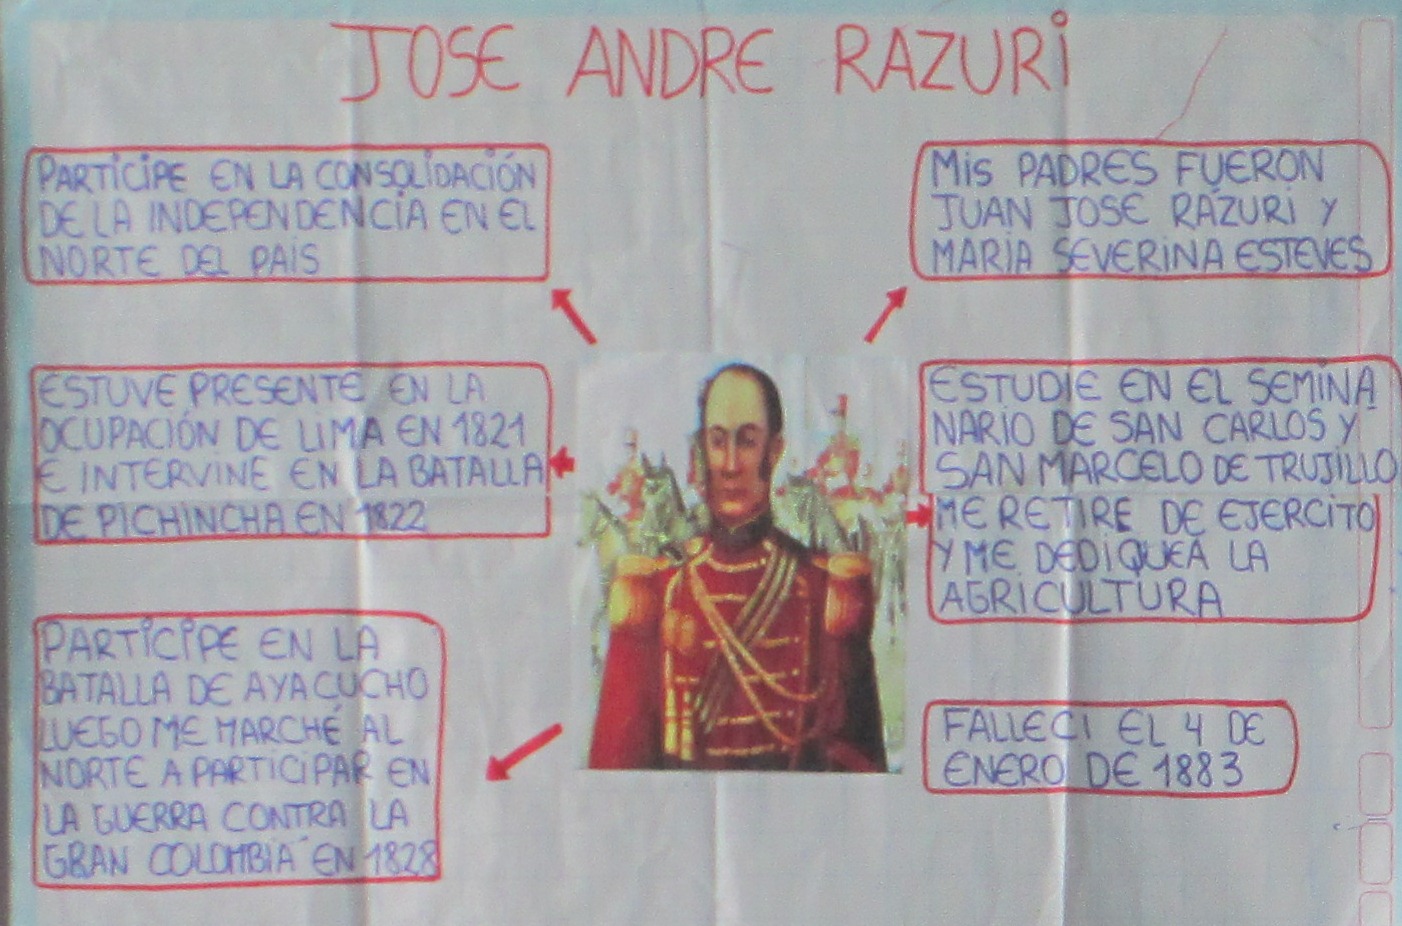 JOSE ANDRE RAZURI
PARTICIPE EN LA CONSOLIDACIÓN
DE LA INDEPENDENCIA EN EL
NORTE DEL PAIS
ESTUVE PRESENTE EN LA
OCUPACIÓN DE LIMA EN 1821
E INTERVINE EN LA BATALLA
DE PICHINCHA EN 1822
PARTICIPE EN LA
BATALLA DE AYACUCHO
LUEGO ME MARCHÉ AL
NORTE A PARTICIPAR EN
LA GUERRA CONTRA LA
GRAN COLOMBIA EN 1828
MIS PADRES FUERON
JUAN JOSE RAZURI Y
MARIA SEVERINA ESTEVES
ESTUDIE EN EL SEMINA
NARIO DE SAN CARLOS Y
SAN MARCELO DE TRUJILLO
ME RETIRE DE EJERCITO
Y ME DEDIQUE A LA
AGRICULTURA
FALLECI EL 4 DE
ENERO DE 1883